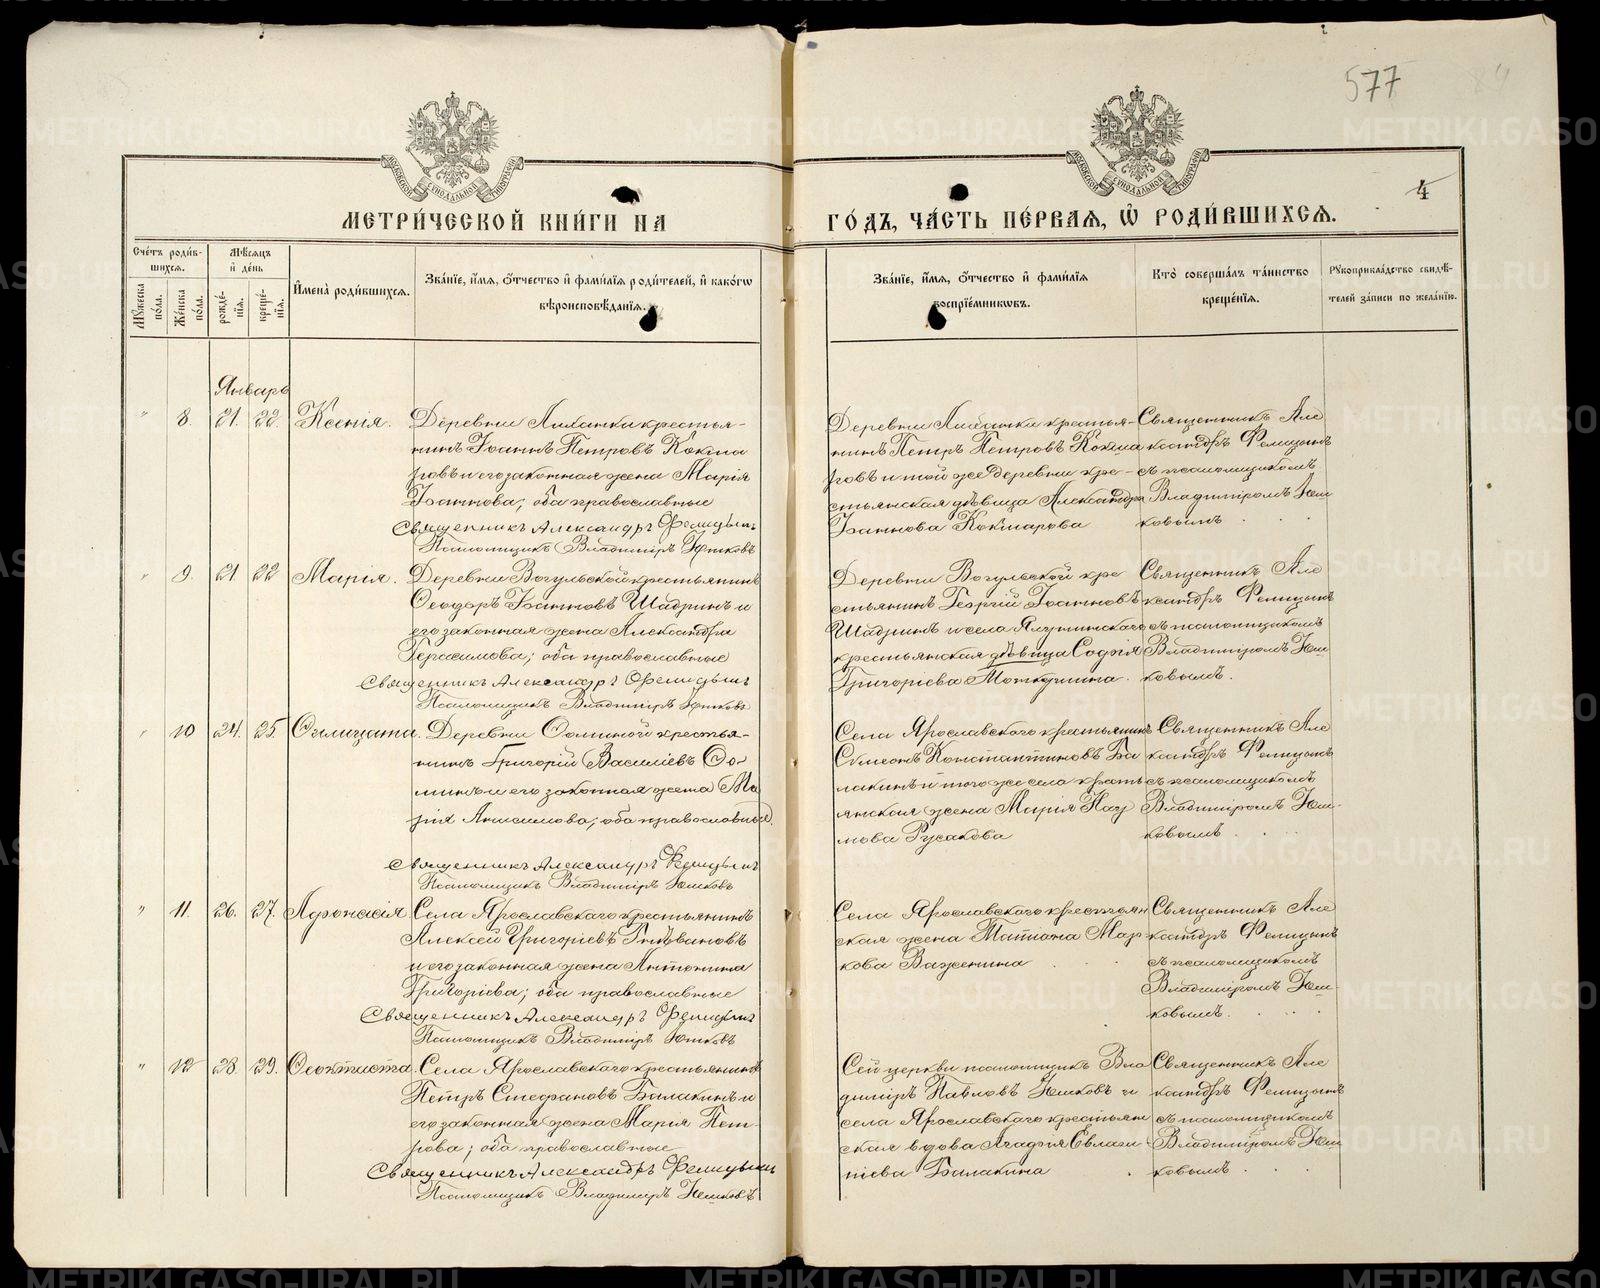 577
4
МОСКОВСКОЙ СѴНОДАЛЬНОЙ ТИПОГРАФІИ
МОСКОВСКОЙ СѴНОДАЛЬНОЙ ТИПОГРАФІИ
МЕТРИ́ЧЕСКОЙ КНИ́ГИ НА
ГО́ДЪ, ЧА́СТЬ ПЕ́РВАЯ, Ѡ҆ РОДИ́ВШИХСЯ.
Сче́тъ роди́в-
шихся.
Мѣ́сяцъ
и҆ де́нь
Мꙋ́жеска по́ла.
Же́нска по́ла.
рожде́-
нїя.
креще́-
нїя.
И҆мена̀ роди́вшихся.
Зва́нїе, и҆́мя, ѻ҆́тчество и҆ фами́лїя роди́телей, и҆ како́гѡ
вѣроисповѣ́данїя.
Зва́нїе, и҆́мя, ѻ҆́тчество и҆ фами́лїя
воспрїе́мникѡвъ.
Кто̀ соверша́лъ та́инство
креще́нїя.
Рꙋкоприкла́дство свидѣ́-
телей за́писи по жела́нїю.
Январь
" 8. 21. 22. Ксенія.
Деревни Липатки крестья-
нинъ Іоаннъ Петровъ Кокша
ровъ и его законная жена Марія
Іоаннова; оба православные
Священникъ Александръ Фелицынъ
Псаломщикъ Владиміръ Юшковъ
Деревни Липатки крестья-
нинъ Петръ Петровъ Кокша
ровъ и той же деревни кре-
стьянская дѣвица Александра
Іоаннова Кокшарова
Священникъ Але
ксандръ Фелицынъ
съ псаломщикомъ
Владиміромъ Юш
ковымъ
" 9. 21. 22 Марія.
Деревни Вогульской крестьянинъ
Ѳеодоръ Іоанновъ Шадринъ и
его законная жена Александра
Герасимова; оба православные
Священникъ Александръ Фелицынъ
Псаломщикъ Владиміръ Юшковъ
Деревни Вогульской кре
стьянинъ Георгій Іоанновъ
Шадринъ и села
крестьянская дѣвица Софія
Григоріева
Священникъ Але
ксандръ Фелицынъ
съ псаломщикомъ
Владиміромъ Юш
ковымъ.
" 10 24. 25.
Деревни Соминой крестья-
нинъ Григорій Василіевъ Со-
минъ и его законная жена Ма
рія Анисимова; оба православные
Священникъ Александръ Фелицынъ
Псаломщикъ Владиміръ Юшковъ
Села Ярославскаго крестьянинъ
Сѵмеонъ Константиновъ Ба
лакинъ и того же села кресть
янская жена Марія Нау
мова Русакова
Священникъ Але
ксандръ Фелицынъ
съ псаломщикомъ
Владиміромъ Юш-
ковымъ
" 11. 26. 27. Аѳонасія.
Села Ярославскаго крестьянинъ
Алексей Григоріевъ
и его законная жена Антонина
Григоріева; оба православные
Священникъ Александръ Фелицынъ
Псаломщикъ Владиміръ Юшковъ
Села Ярославскаго крестьян
ская жена Татіана Мар
кова Важенина
Священникъ Але
ксандръ Фелицынъ
съ псаломщикомъ
Владиміромъ Юш
ковымъ.
" 12 28. 29. Ѳеоктиста.
Села Ярославскаго крестьянинъ
Петръ Стефановъ Балакинъ и
его законная жена Марія Пет-
рова; оба православные
Священникъ Александръ Фелицынъ
Псаломщикъ Владиміръ Юшковъ
Сей церкви псаломщикъ Вла
диміръ Павловъ Юшковъ и
села Ярославскаго крестьян
ская вдова Агафія Евлам-
піева Балакина
Священникъ Але
ксандръ Фелицынъ
съ псаломщикомъ
Владиміромъ Юш
ковымъ
METRIKI.GASO-URAL.RU